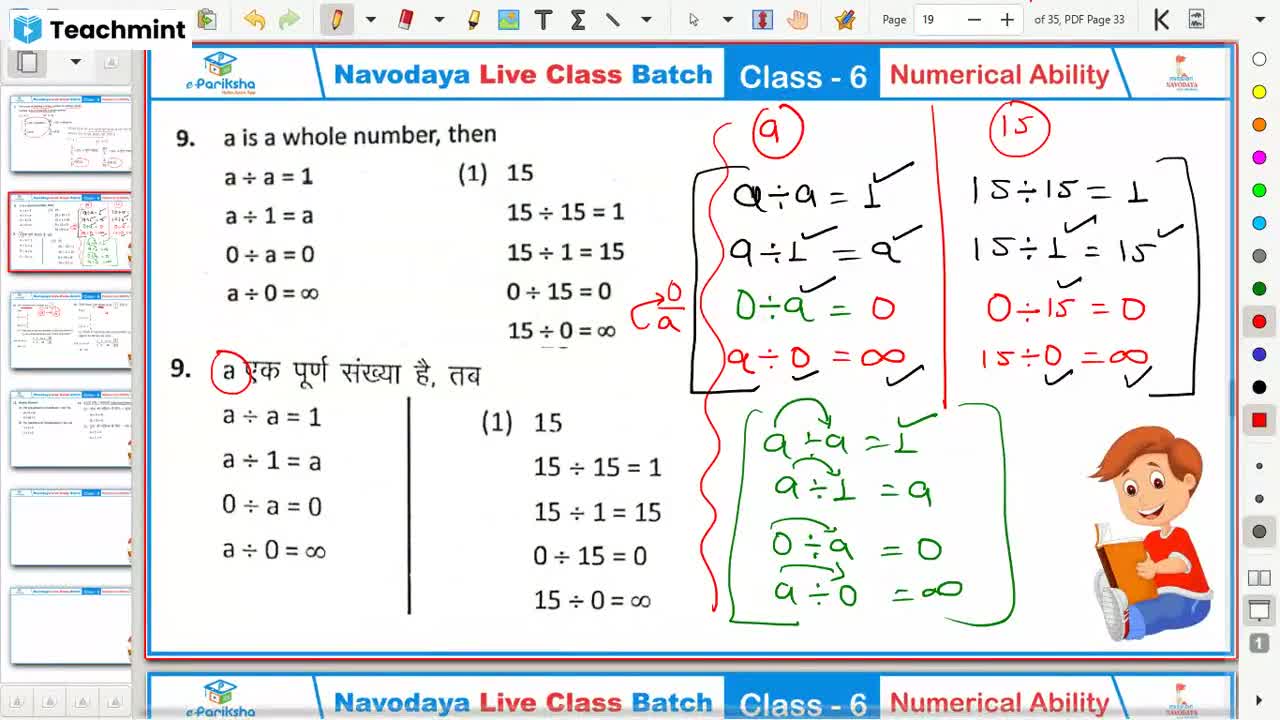 Teachmint
Page 19 of 35, PDF Page 33
e-Pariksha
Navodaya Live Class Batch
Class - 6
Numerical Ability
NAVODAYA
9. a is a whole number, then
a ÷ a = 1
a ÷ 1 = a
0 ÷ a = 0
a ÷ 0 = ∞
(1) 15
15 ÷ 15 = 1
15 ÷ 1 = 15
0 ÷ 15 = 0
15 ÷ 0 = ∞
9. a एक पूर्ण संख्या है, तब
a ÷ a = 1
a ÷ 1 = a
0 ÷ a = 0
a ÷ 0 = ∞
(1) 15
15 ÷ 15 = 1
15 ÷ 1 = 15
0 ÷ 15 = 0
15 ÷ 0 = ∞
0
a
a
a ÷ a = 1
a ÷ 1 = a
0 ÷ a = 0
a ÷ 0 = ∞
15
15 ÷ 15 = 1
15 ÷ 1 = 15
0 ÷ 15 = 0
15 ÷ 0 = ∞
a ÷ a = 1
a ÷ 1 = a
0 ÷ a = 0
a ÷ 0 = ∞
1
e-Pariksha
Navodaya Live Class Batch
Class - 6
Numerical Ability
NAVODAYA